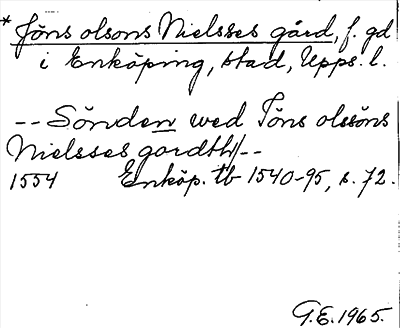 * Jöns olsons Nielsses gård, f. gd
i Enköping, stad, Upps. l.
-- Sönden wed Jöns olssöns
Nielsses gordth/--
1554 Enköp. tb 1540-95, s. 72.
G.E. 1965.